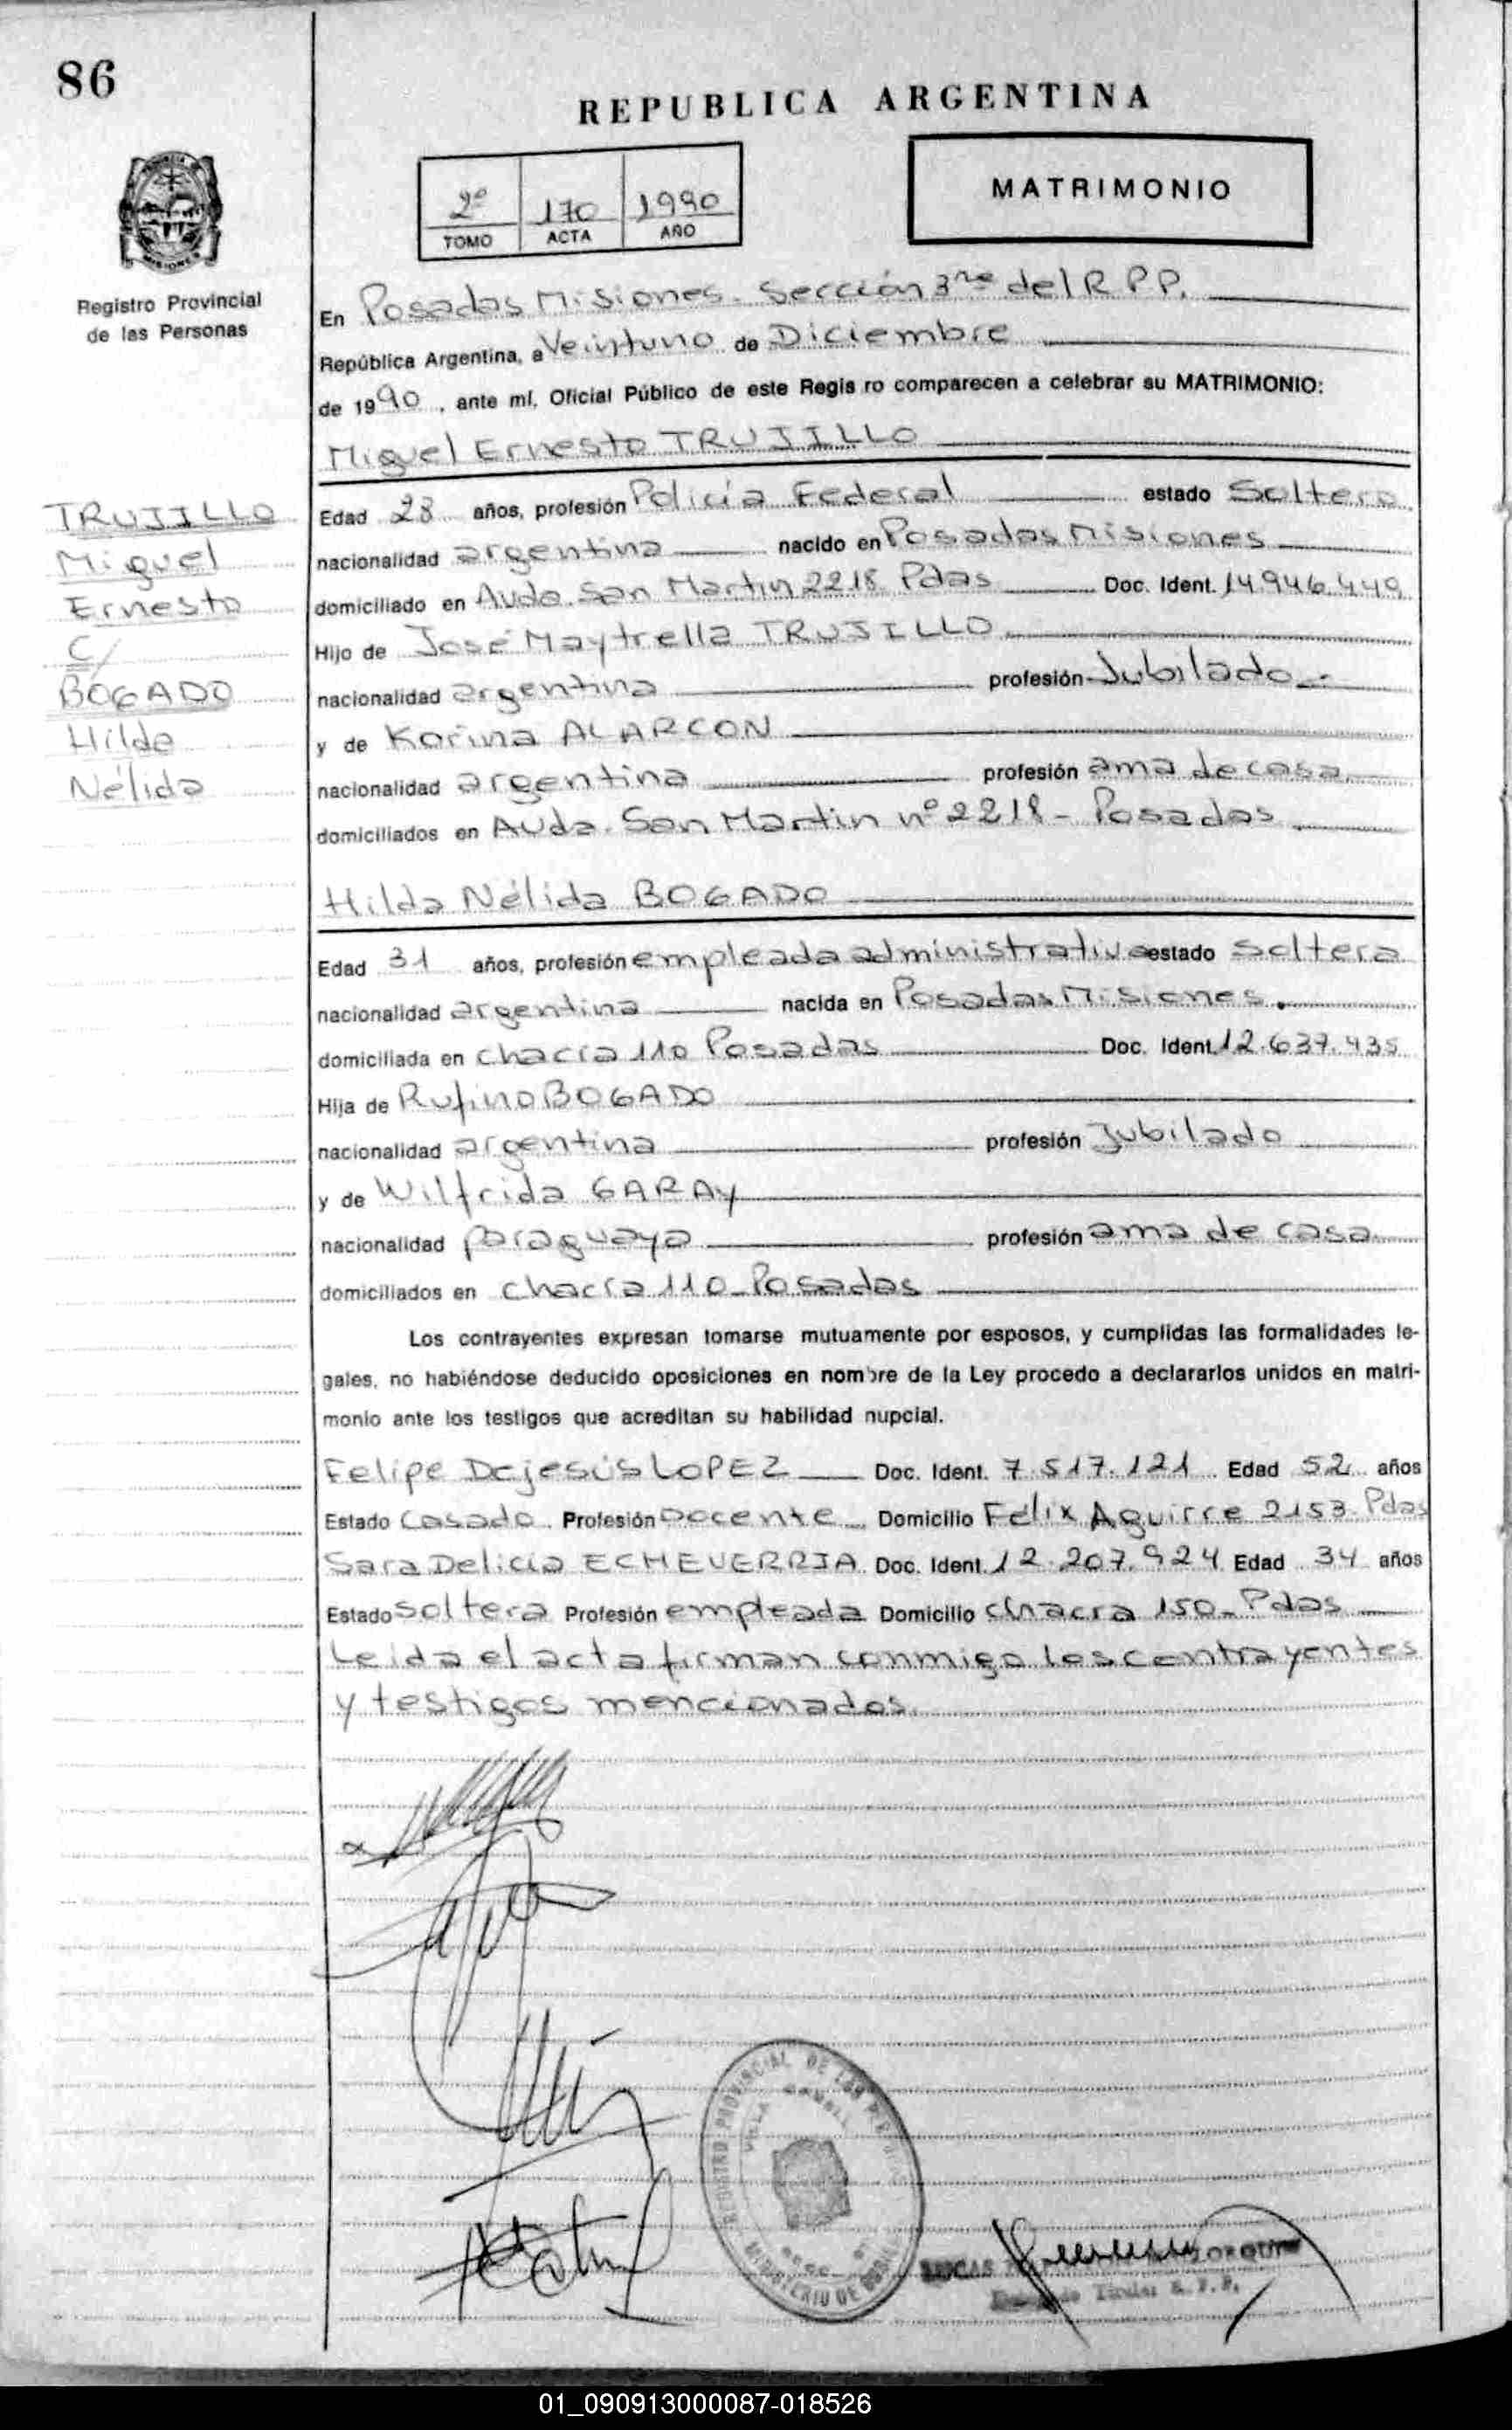 86
REPUBLICA ARGENTINA
MATRIMONIO
2º 170 1990
TOMO ACTA AÑO
Registro Provincial
de las Personas
En Posadas Misiones. Sección 3ra del R.P.P.
República Argentina, a Veintuno de Diciembre
de 1990, ante mí, Oficial Público de este Regis ro comparecen a celebrar su MATRIMONIO:
Miguel Ernesto TRUJILLO
TRUJILLO
Miguel
Ernesto
C/
BOGADO
Hilda
Nélida
Edad 28 años, profesión Policía Federal estado Soltero
nacionalidad argentina nacido en Posadas Misiones
domiciliado en Avda. San Martin 2218 Pdas Doc. Ident. 14.946.449
Hijo de José Maytrella TRUJILLO
nacionalidad argentina profesión Jubilado.-
y de Korina ALARCON
nacionalidad argentina profesión ama de casa
domiciliados en Avda. San Martin nº 2218 - Posadas
Hilda Nélida BOGADO
Edad 31 años, profesión empleada administrativa estado soltera
nacionalidad argentina nacida en Posadas Misiones.
domiciliada en chacra 110 Posadas Doc. Ident. 12.637.435
Hija de Rufino BOGADO
nacionalidad argentina profesión Jubilado
y de Wilfrida GARAY
nacionalidad paraguaya profesión ama de casa
domiciliados en chacra 110 - Posadas
Los contrayentes expresan tomarse mutuamente por esposos, y cumplidas las formalidades le-
gales, no habiéndose deducido oposiciones en nombre de la Ley procedo a declararlos unidos en matri-
monio ante los testigos que acreditan su habilidad nupcial.
Felipe Dejesús LOPEZ Doc. Ident. 7.517.121 Edad 52 años
Estado Casado Profesión Docente Domicilio Félix Aguirre 2153 Pdas
Sara Delicia ECHEVERRIA Doc. Ident. 12.207.924 Edad 34 años
Estado soltera Profesión empleada Domicilio chacra 150 - Pdas
Leida el acta firman conmigo los contrayentes
y testigos mencionados.
REGISTRO PROVINCIAL DE LAS PERSONAS
MINISTERIO DE
LUCAS
Titular R. P. P.
01_090913000087-018526